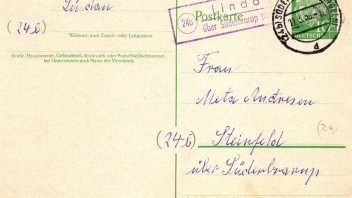 Lindau
(24b)
Wohnort, auch Zustell- oder Leitpostamt
Straße, Hausnummer, Gebäudeteil, Stockwerk oder Postschließfachnummer,
bei Untermietern auch Name des Vermieters
Postkarte
24b
Linda
über Süderbrarup
(24b) SÜDERB
DEUTSCHE
Frau
Meta Andresen
(24b) Steinfeld
über Süderbrarup